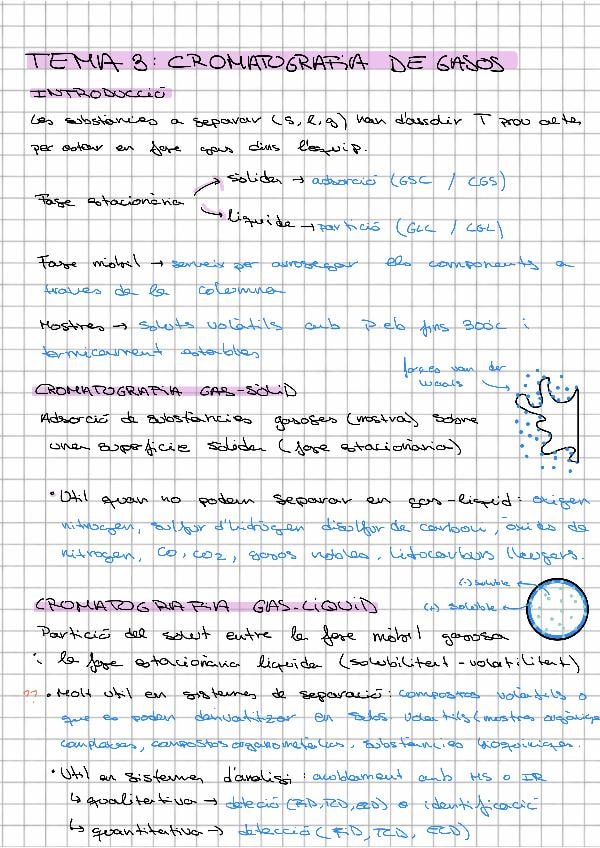 TEMA 3: CROMATOGRAFIA DE GASOS
INTRODUCCIÓ
Les substàncies a separar (s, l, g) han d'assolir T prou altes
per estar en fase gas dins l'equip.
Fase estacionària
sòlida → adsorció (GSC / CGS)
líquida → partició (GLC / CGL)
Fase mòbil → serveix per arrossegar els components a
través de la columna
Mostres → soluts volàtils amb P eb fins 300ºC i
tèrmicament estables
forces van der
waals
CROMATOGRAFIA GAS-SÒLID
Adsorció de substàncies gasoses (mostra) sobre
una superfície sòlida (fase estacionària)
• Útil quan no podem separar en gas-líquid: oxigen
nitrogen, sulfur d'hidrogen disulfur de carboni, òxids de
nitrogen, CO, CO2, gasos nobles, hidrocarburs lleugers.
(-) soluble
(+) soluble
CROMATOGRAFIA GAS-LÍQUID
Partició del solut entre la fase mòbil gasosa
i la fase estacionària líquida (solubilitat-volatilitat)
?? • Molt útil en sistemes de separació: compostos volàtils o
que es poden derivatitzar en subs volàtils (mostres orgàniques
complexes, compostos organometàl·lics, substàncies bioquímiques.
• Útil en sistemes d'anàlisi: acoblament amb MS o IR
↳ qualitativa → detecció (FID, TCD, ECD) o identificació
↳ quantitativa → detecció (FID, TCD, ECD)